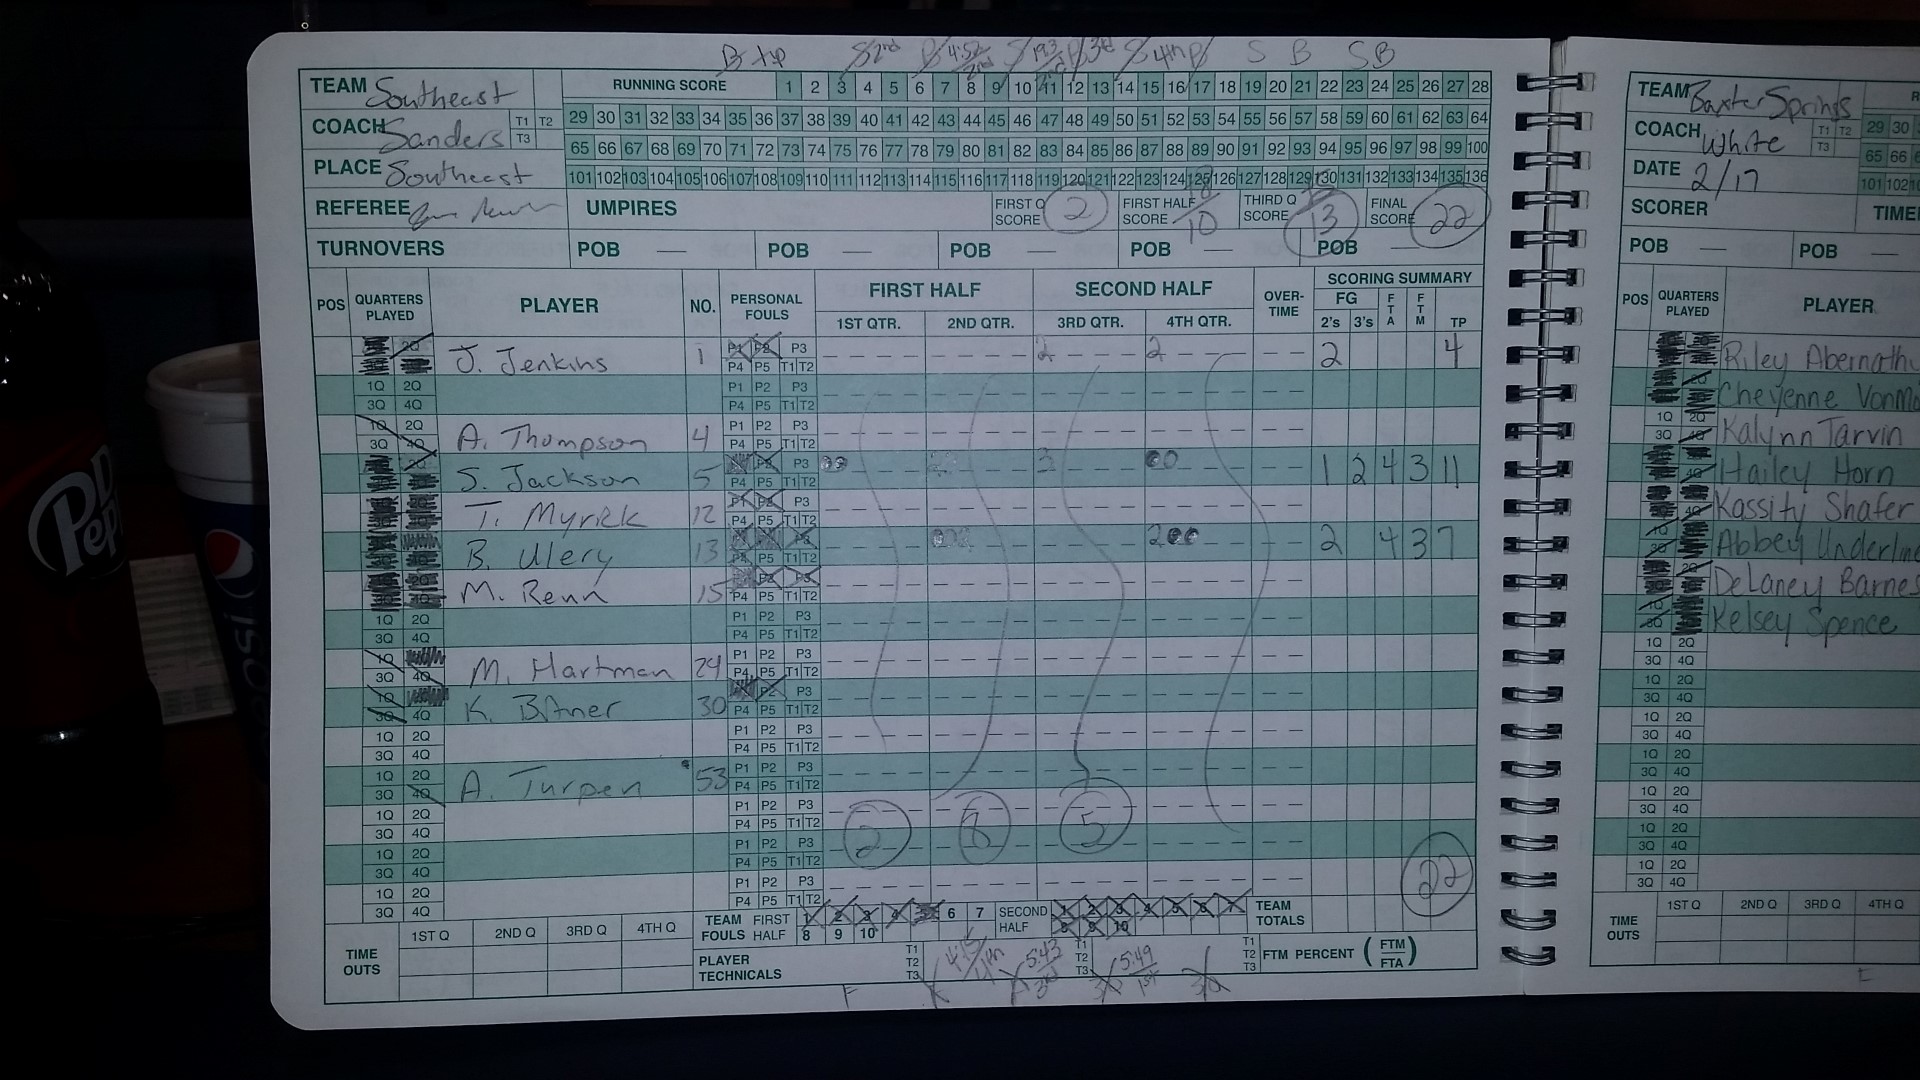 B tip S 2nd S 4th S B S B
TEAM Southeast
COACH Sanders T1 T2 T3
PLACE Southeast
REFEREE
RUNNING SCORE 1 2 3 4 5 6 7 8 9 10 11 12 13 14 15 16 17 18 19 20 21 22 23 24 25 26 27 28
29 30 31 32 33 34 35 36 37 38 39 40 41 42 43 44 45 46 47 48 49 50 51 52 53 54 55 56 57 58 59 60 61 62 63 64
65 66 67 68 69 70 71 72 73 74 75 76 77 78 79 80 81 82 83 84 85 86 87 88 89 90 91 92 93 94 95 96 97 98 99 100
101 102 103 104 105 106 107 108 109 110 111 112 113 114 115 116 117 118 119 120 121 122 123 124 125 126 127 128 129 130 131 132 133 134 135 136
UMPIRES FIRST Q SCORE 2 FIRST HALF SCORE 10 THIRD Q SCORE 13 FINAL SCORE 22
TURNOVERS POB — POB — POB — POB — POB —
POS QUARTERS PLAYED PLAYER NO. PERSONAL FOULS FIRST HALF SECOND HALF OVER-TIME SCORING SUMMARY
1ST QTR. 2ND QTR. 3RD QTR. 4TH QTR. FG 2's 3's FTA FTM TP
J. Jenkins 1 P1 P2 P3 2 2 2 4
P4 P5 T1 T2
1Q 2Q P1 P2 P3
3Q 4Q P4 P5 T1 T2
1Q 2Q P1 P2 P3
3Q 4Q A. Thompson 4 P4 P5 T1 T2
S. Jackson 5 P2 P3 3 1 2 4 3 11
P4 P5 T1 T2
T. Myrick 12 P1 P2 P3
P4 P5 T1 T2
B. Ulery 13 2 2 4 3 7
P4 P5 T1 T2
M. Renn 15 P2 P3
P4 P5 T1 T2
1Q 2Q P1 P2 P3
3Q 4Q P4 P5 T1 T2
1Q P1 P2 P3
3Q 4Q M. Hartman 24 P4 P5 T1 T2
1Q P2 P3
3Q 4Q K. Bitner 30 P4 P5 T1 T2
1Q 2Q P1 P2 P3
3Q 4Q P4 P5 T1 T2
1Q 2Q P1 P2 P3
3Q 4Q A. Turpen 53 P4 P5 T1 T2
1Q 2Q P1 P2 P3
3Q 4Q P4 P5 T1 T2
2 8 5
1Q 2Q P1 P2 P3
3Q 4Q P4 P5 T1 T2
22
1Q 2Q P1 P2 P3
3Q 4Q P4 P5 T1 T2
TIME OUTS 1ST Q 2ND Q 3RD Q 4TH Q
TEAM FOULS FIRST HALF 1 2 3 4 5 6 7 8 9 10 SECOND HALF 1 2 3 4 5 6 7 8 9 10 TEAM TOTALS
PLAYER TECHNICALS T1 T2 T3 T1 T2 T3 T1 T2 T3 FTM PERCENT (FTM FTA)
5:43 3rd 5:49 1st
F
TEAM Baxter Springs
COACH White T1 T2 T3
DATE 2/17
SCORER
29 30
POB — POB —
POS QUARTERS PLAYED PLAYER
Cheyenne
Kalynn Tarvin
Hailey Horn
Kassity Shafer
DeLaney Barnes
Kelsey Spence
1Q 2Q
3Q 4Q
1Q 2Q
3Q 4Q
1Q 2Q
3Q 4Q
1Q 2Q
3Q 4Q
1Q 2Q
3Q 4Q
1Q 2Q
3Q 4Q
1Q 2Q
3Q 4Q
TIME OUTS 1ST Q 2ND Q 3RD Q 4TH Q
pepsi